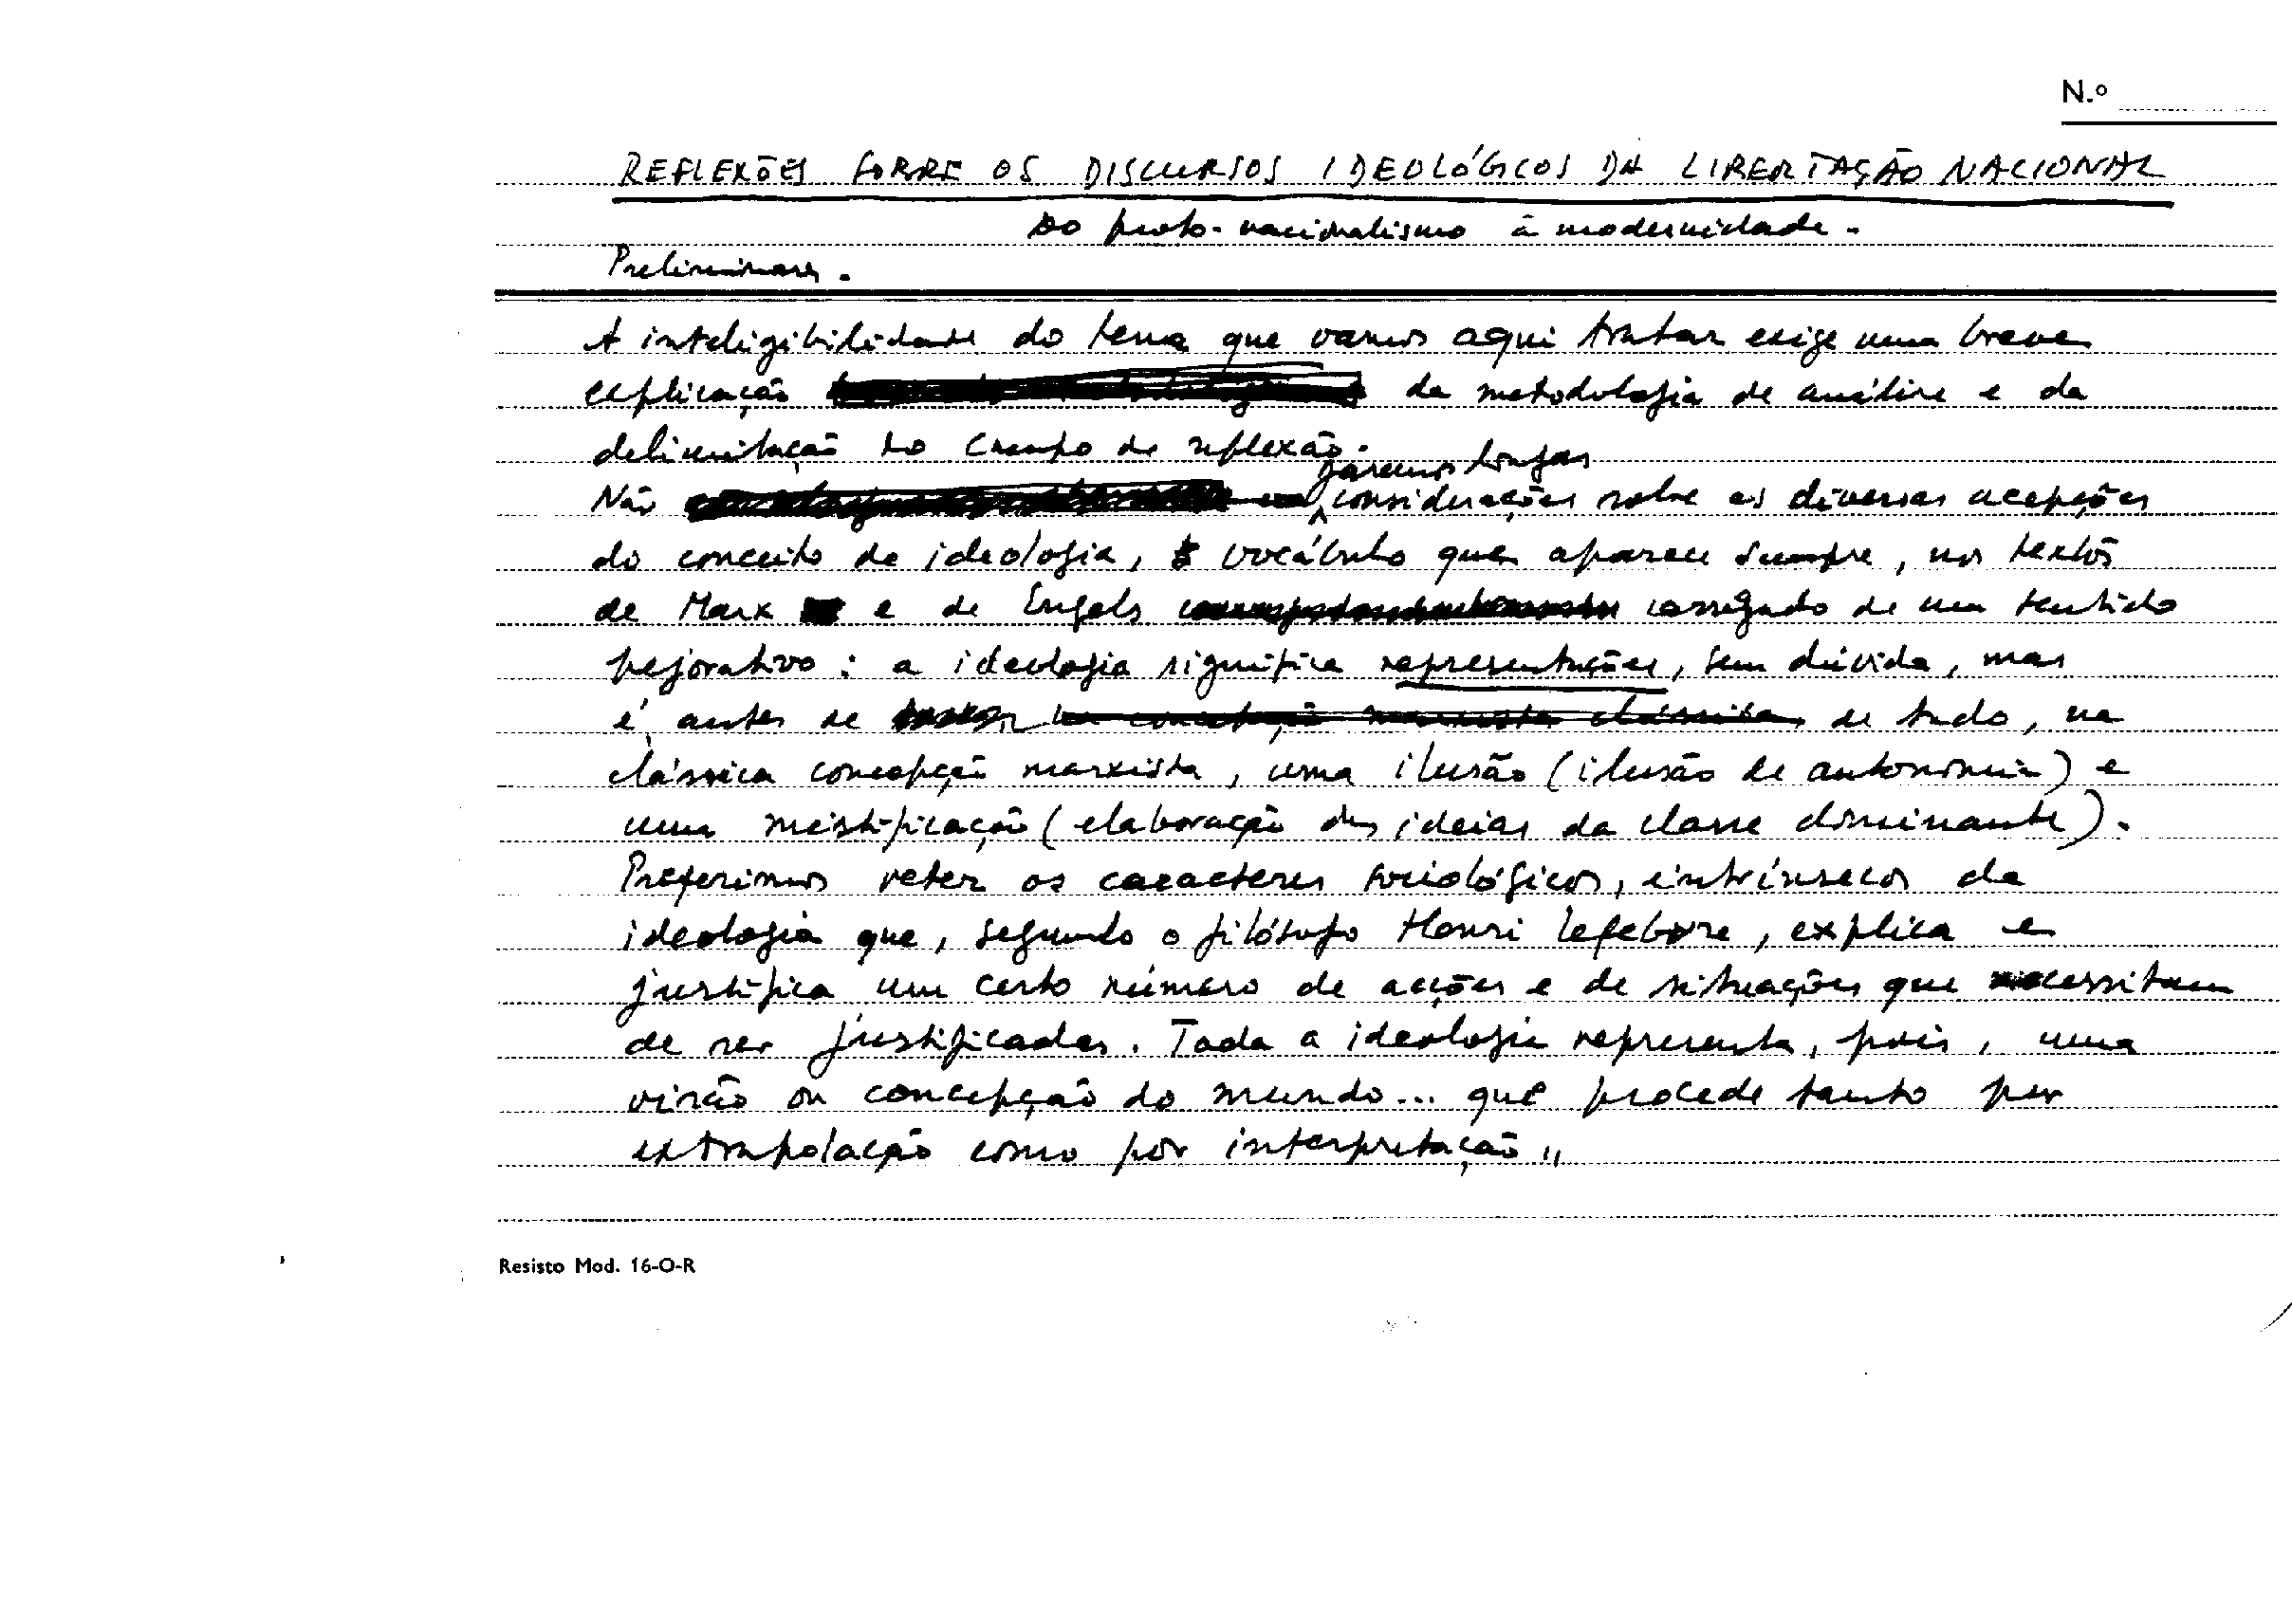 N.º
REFLEXÕES SOBRE OS DISCURSOS IDEOLÓGICOS DA LIBERTAÇÃO NACIONAL
Do proto-nacionalismo à modernidade.
Preliminares.
A inteligibilidade do tema que vamos aqui tratar exige uma breve
explicação da metodologia de análise e da
delimitação do campo de reflexão.
faremos longas
Não considerações sobre as diversas acepções
do conceito de ideologia, vocábulo que aparece sempre, nos textos
de Marx e de Engels carregado de um sentido
pejorativo : a ideologia significa representações, sem dúvida, mas
é, antes de na concepção marxista clássica, de tudo, na
clássica concepção marxista, uma ilusão (ilusão de autonomia) e
uma mistificação (elaboração das ideias da classe dominante).
Preferimos reter os caracteres sociológicos, intrínsecos da
ideologia que, segundo o filósofo Henri Lefebvre, explica e
justifica um certo número de acções e de situações que necessitam
de ser justificadas. Toda a ideologia representa, pois, uma
visão ou concepção do mundo... que procede tanto por
extrapolação como por interpretação"
Resisto Mod. 16-O-R